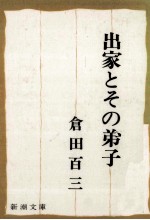 出家とその弟子
倉田百三
新潮文庫